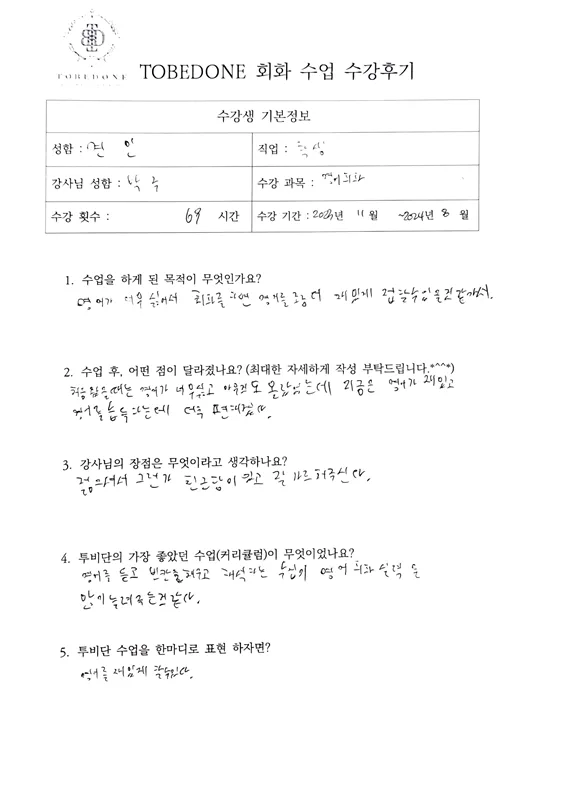 TOBEDONE
TOBEDONE 회화 수업 수강후기
수강생 기본정보
성함 : 인
직업 : 학생
강사님 성함 : 박 주
수강 과목 : 영어회화
수강 횟수 : 69 시간
수강 기간 : 2023년 11월 ~2024년 8월
1. 수업을 하게 된 목적이 무엇인가요?
영어가 너무 싫어서 회화를 하면 영어를 조금 더 재밌게 접할수있을것같아서.
2. 수업 후, 어떤 점이 달라졌나요? (최대한 자세하게 작성 부탁드립니다.*^^*)
처음왔을때는 영어가 너무싫고 아무것도 몰랐었는데 지금은 영어가 재밌고
영어를 습득하는데 더욱 편해졌다.
3. 강사님의 장점은 무엇이라고 생각하나요?
젊으셔서 그런가 친근감이 있고 잘 가르쳐주신다.
4. 투비단의 가장 좋았던 수업(커리큘럼)이 무엇이었나요?
영어를 듣고 빈칸을채우고 해석하는 수업이 영어 회화 실력 을
많이 늘려주는것같다.
5. 투비단 수업을 한마디로 표현 하자면?
영어를 재밌게 할수있다.